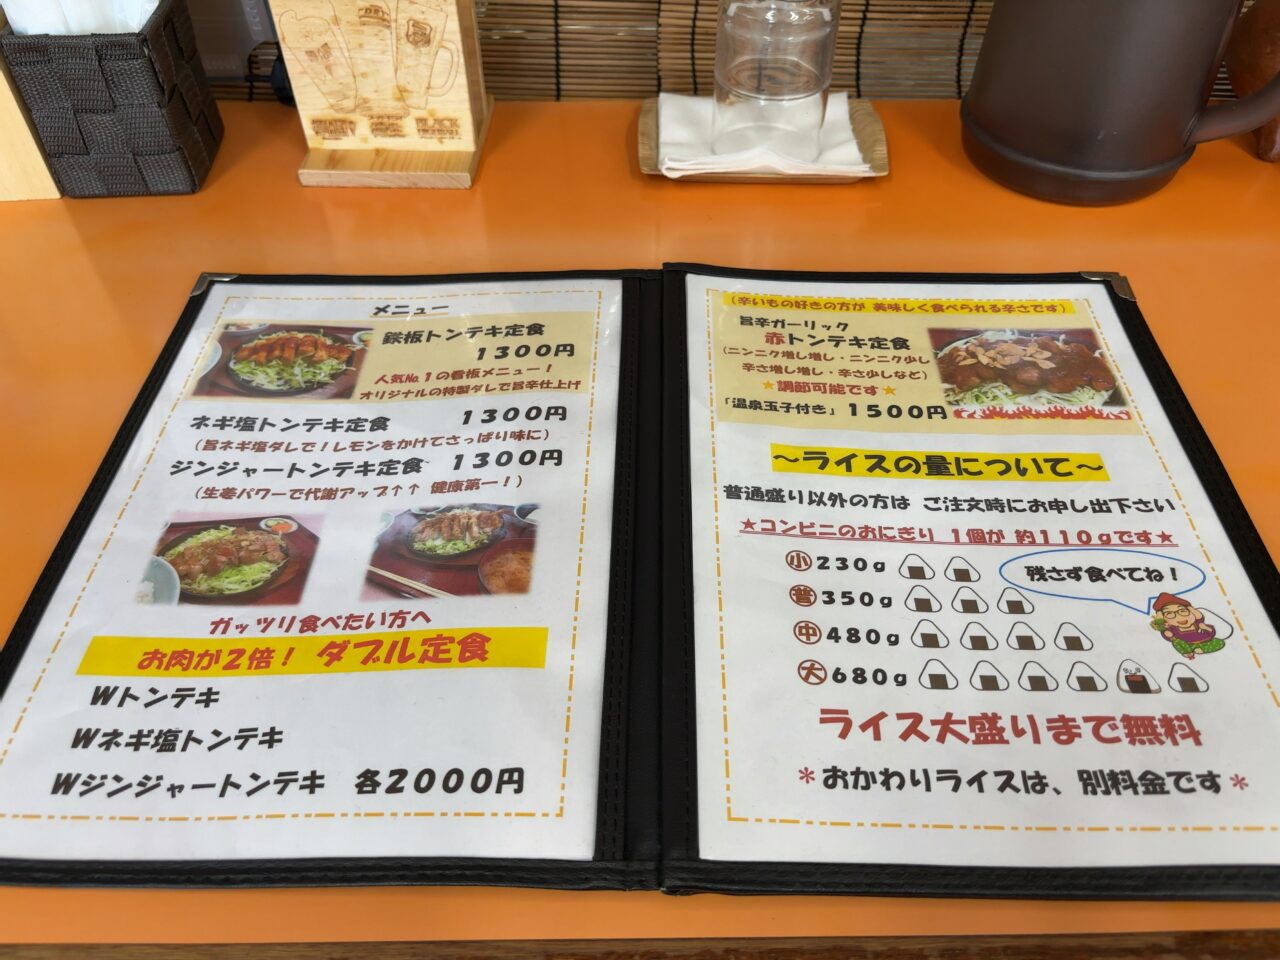 メニュー
鉄板トンテキ定食
1300円
人気№1の看板メニュー!
オリジナルの特製ダレで旨辛仕上げ
ネギ塩トンテキ定食 1300円
(旨ネギ塩ダレで!レモンをかけてさっぱり味に)
ジンジャートンテキ定食 1300円
(生姜パワーで代謝アップ↑↑ 健康第一!)
ガッツリ食べたい方へ
お肉が2倍! ダブル定食
Wトンテキ
Wネギ塩トンテキ
Wジンジャートンテキ 各2000円
(辛いもの好きの方が 美味しく食べられる辛さです)
旨辛ガーリック
赤トンテキ定食
(ニンニク増し増し・ニンニク少し
辛さ増し増し・辛さ少しなど)
★調節可能です★
「温泉玉子付き」1500円
~ライスの量について~
普通盛り以外の方は ご注文時にお申し出下さい
★コンビニのおにぎり 1個が 約110gです★
小 230g
残さず食べてね!
普 350g
中 480g
大 680g
ライス大盛りまで無料
*おかわりライスは、別料金です*